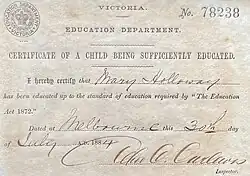 VICTORIA.
No. 78238
EDUCATION DEPARTMENT.
CERTIFICATE OF A CHILD BEING SUFFICIENTLY EDUCATED.
I hereby certify that Mary Holloway
has been educated up to the standard of education required by "The Education
Act 1872."
Dated at Melbourne this 30th day
of July 1884
Inspector.